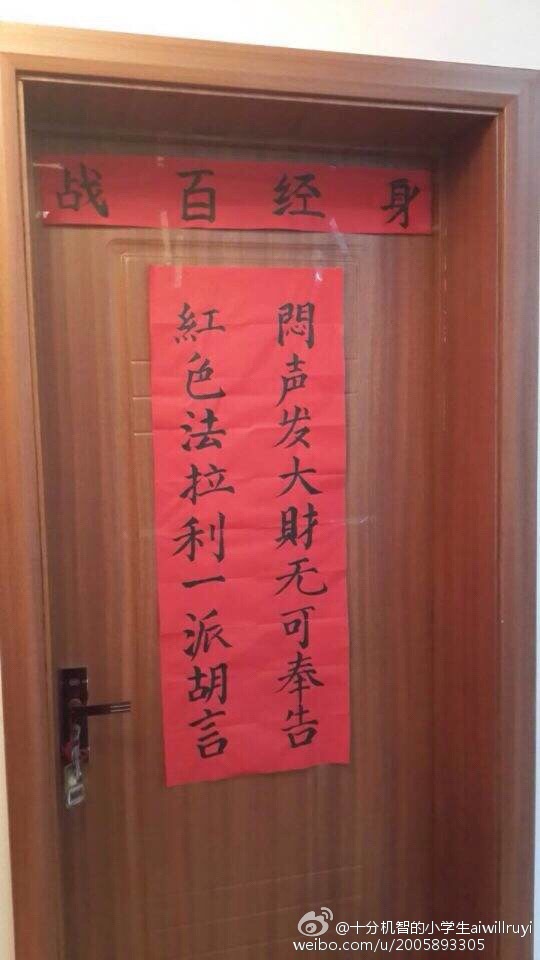 身经百战
悶声发大財无可奉告
紅色法拉利一派胡言
@十分机智的小学生aiwillruyi
weibo.com/u/2005893305